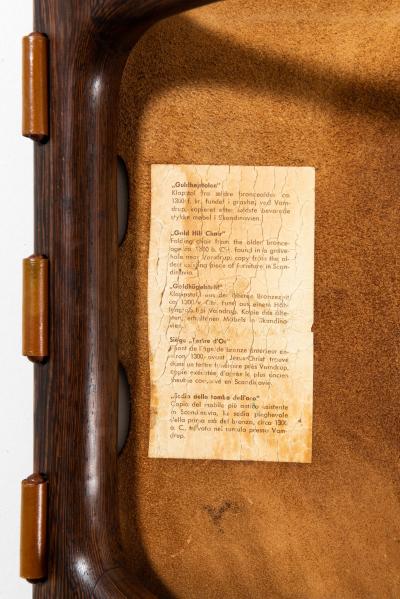 „Guldhøjstolen"
Klapstol fra ældre bronzealder ca.
1300 f. kr. fundet i gravhøj ved Vam-
drup, kopieret efter ældste bevarede
stykke møbel i Skandinavien.
„Gold Hill Chair"
Folding chair from the older bronce-
age ca. 1300 b. Chr. found in a grave-
hole near Vamdrup; copy from the ol-
dest existing piece of furniture in Scan-
dinavia.
„Goldhügelstuhl"
Klappstuhl aus der älteren Bronzezeit,
ca 1300 v. Chr. fund aus einem Hüh-
bei Vamdrup. Kopie des älte-
sten, erhaltenen Möbels in Skandina-
vien.
Siège „Tertre d'Or"
Pliant de l'âge de bronze antérieur en-
viron 1300 avant Jésus-Christ trouvé
dans un tertre funéraire près Vamdrup,
copie exécutée d'après le plus ancien
meuble conservé en Scandinavie.
„Sedia della tomba dell'oro"
Copia del mobile più antico esistente
in Scandinavia, la sedia pieghevole
della prima età del bronzo, circa 1300
a. C., trovata nel tumulo presso Vam-
drup.